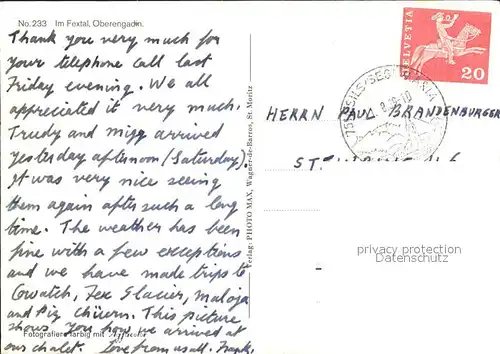 No. 233 Im Fextal, Oberengadin.
Thank you very much for
your telephone call last
Friday evening. We all
appreciated it very much.
Trudy and arrived
yesterday afternoon (Saturday).
It was very nice seeing
them again after such a long
time. The weather has been
fine with a few exceptions
and we have made trips to
Fex Glacier, Maloja
and Piz This picture
shows you how we arrived at
our chalet. Love from us all. Frank.
Fotografiert farbig mit
Verlag: PHOTO MAX, Wagner-de-Barros, St. Moritz
HELVETIA
20
SILS/SEGL MARIA
HERRN PAUL BRANDENBURGER
ST.
privacy protection
Datenschutz